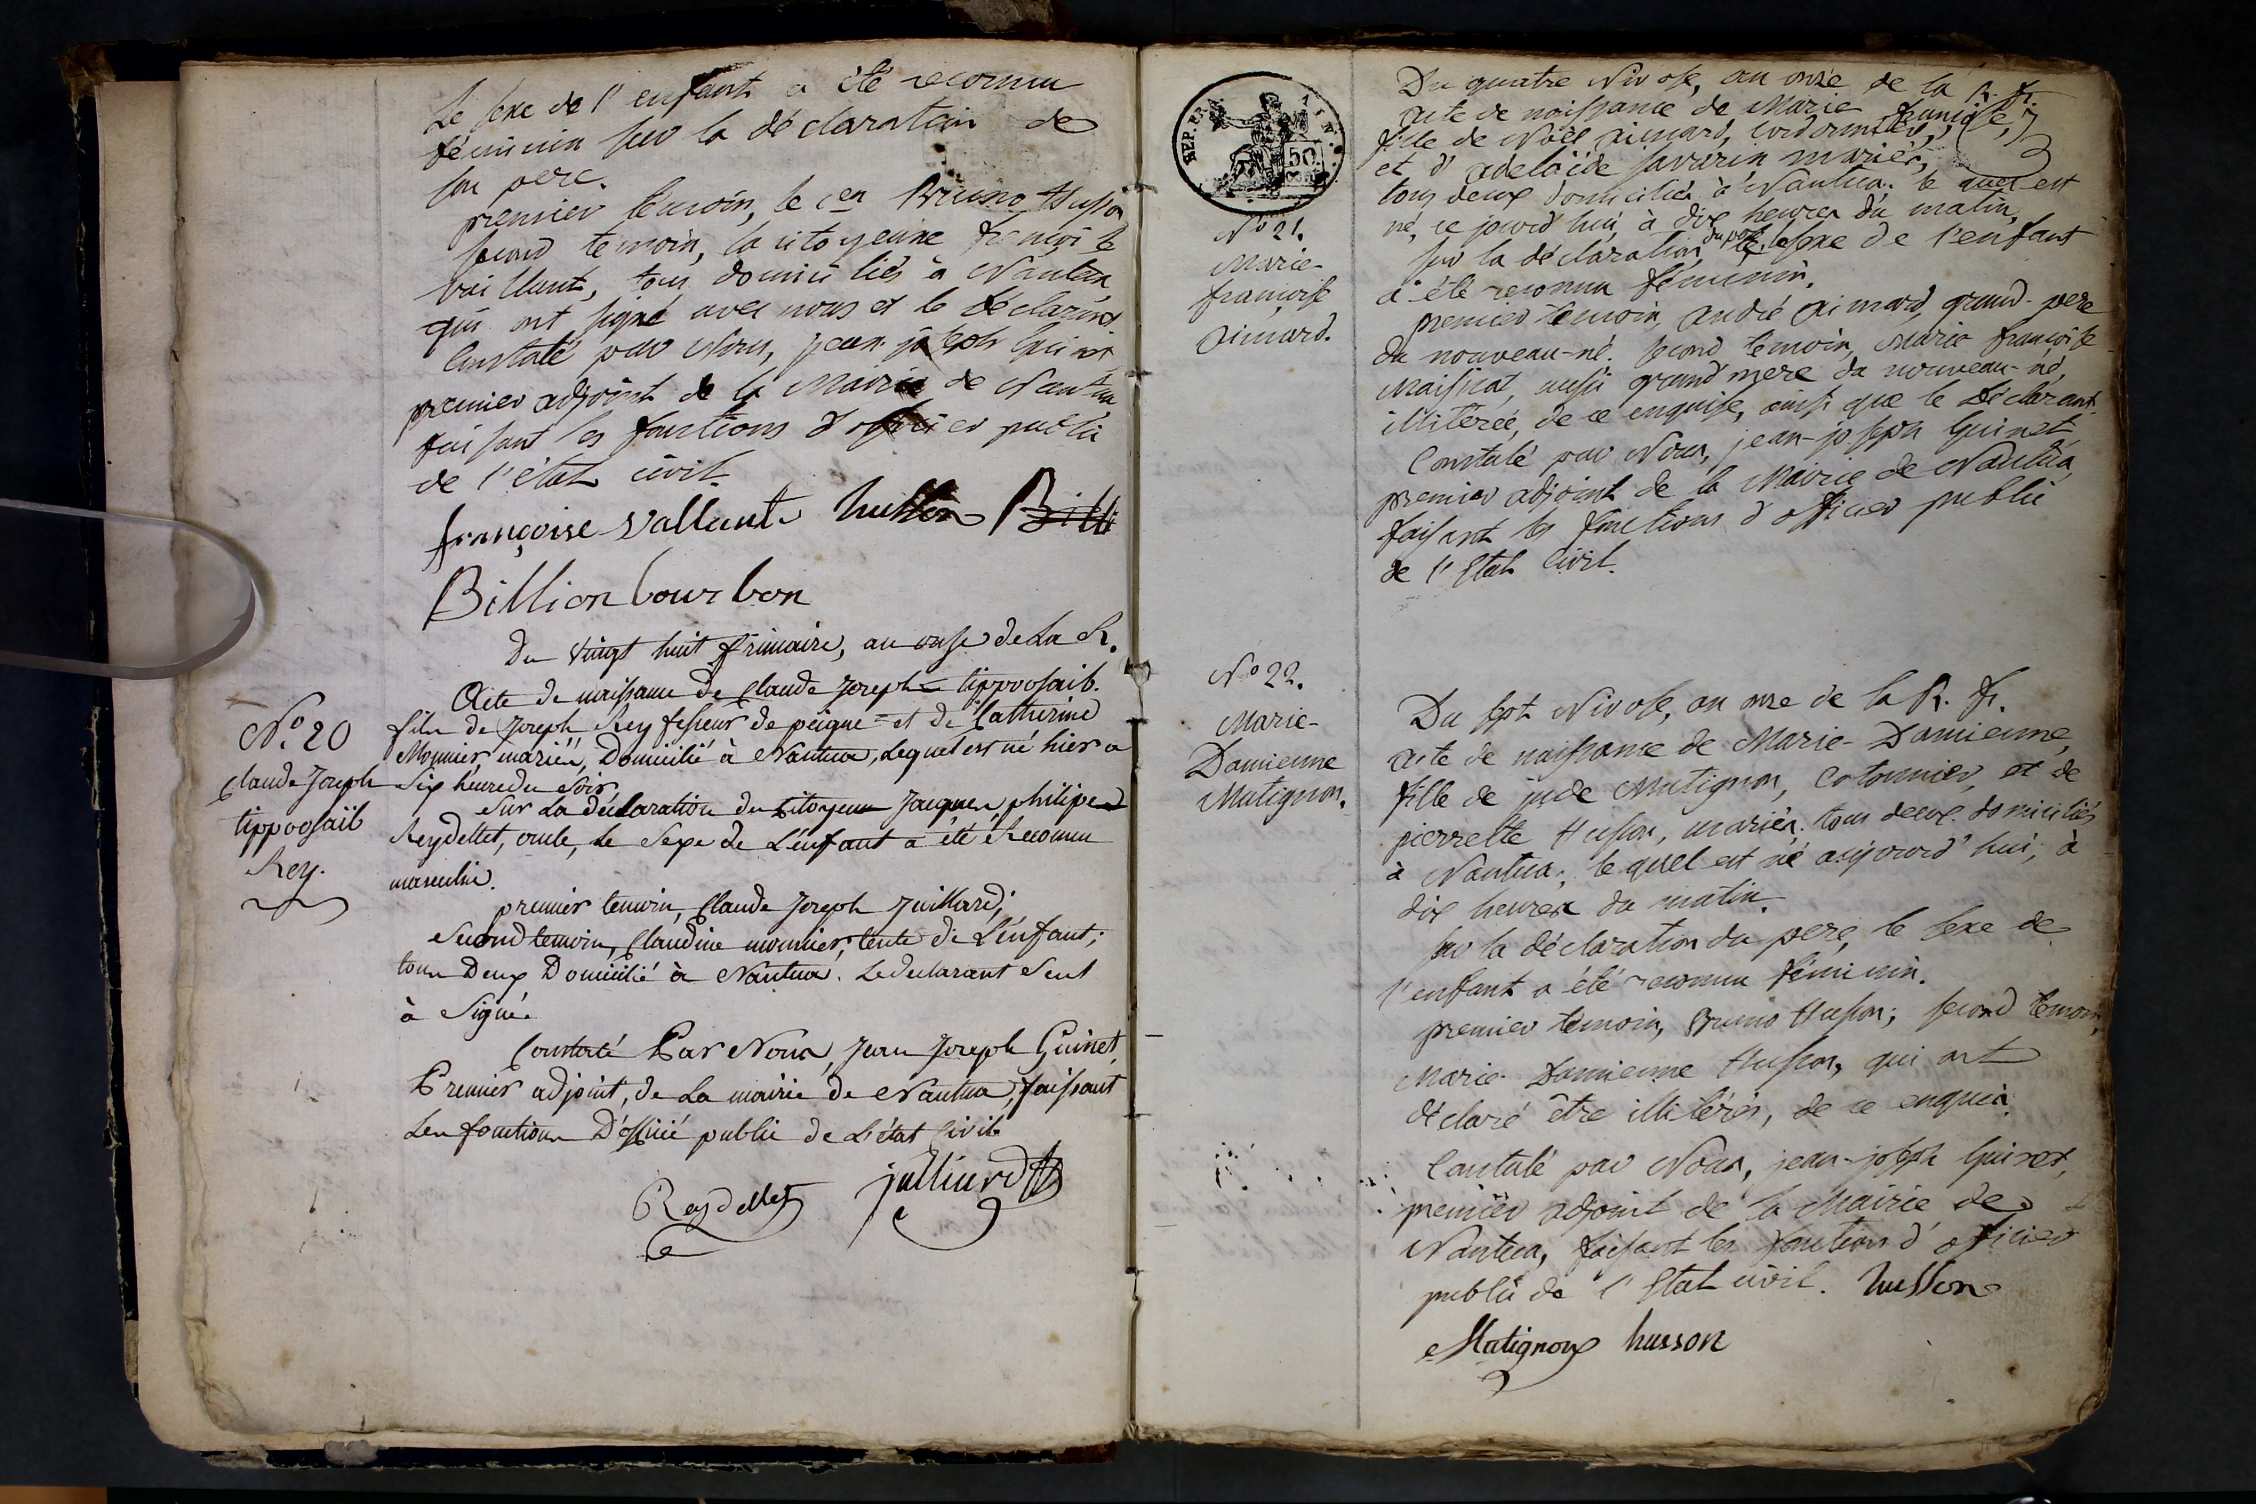 Le sexe de l'enfant a été reconnu
féminin sur la déclaration de
son pere.
premier témoin, le cen Bruno Husson
second témoin, la citoyenne françoise
vaillant, tous domiciliés à Nantua
qui ont signé avec nous et le déclarant
Constaté par Nous, jean-joseph Guinet
premier adjoint de la Mairie de Nantua
faisant les fonctions d'officier public
de l'état civil.
françoise vallant husson Billi
Billion bourbon
Du vingt huit frimaire, an onse de La R.
Acte de naissance de Claude Joseph tippoosaib.
fils de Joseph Rey feseur de peigne et de Catherine
Monnier, mariés, Domicilié à Nantua, Lequel est né hier a
Six heure du Soir.
Sur La déclaration du Citoyen Jacques philipe
Reydellet, oncle, Le Sexe de L'enfant a été Reconnu
masculin.
premier temoin, Claude Joseph Juillard;
Second temoin, Claudine monnier; tente de L'enfant;
tous Deux Domicilié à Nantua. Le declarant Seul
à Signé.
Constaté Par Nous, Jean Joseph Guinet
Premier adjoint, de La mairie de Nantua, faissant
Les fonctions D'officié public de L'état Civil
Reydellet julliard
No. 20
Claude Joseph
tippoosaib
Rey.
REP. FRA. AIN.
50
No 21.
Marie-
françoise
Aimard.
Du quatre Nivose, an onze de la R. fr.
acte de naissance de Marie françoise,
fille de Noël Aimard, cordonnier,
et d'adelaïde savarin mariés,
tous deux domiciliés à Nantua. le quel est
né, ce jourd'hui, à dix heures du matin,
sur la déclaration du pere, le sexe de l'enfant
a été reconnu féminin.
premier témoin, andré Aimard, grand-pere
du nouveau-né. second témoin, Marie françoise
Maissiat, aussi grand'mere du nouveau-né,
illitérée, de ce enquise, ainsi que le Déclarant.
Constaté par Nous, jean-joseph Guinet
premier adjoint de la Mairie de Nantua
faisant les fonctions d'officier public
de l'Etat civil.
No 22.
Marie-
Damienne
Matignon.
Du sept Nivose, an onze de la R. fr.
acte de naissance de Marie-Damienne,
fille de jude Matignon, Cotonnier, et de
pierrette Husson, mariés, tous deux domiciliés
à Nantua; le quel est né aujourd'hui, à
dix heures du matin.
sur la déclaration du pere, le sexe de
l'enfant a été reconnu féminin.
premier témoin, Bruno Husson; second témoin,
Marie-Damienne Husson, qui ont
déclaré être illitérés, de ce enquis.
Constaté par Nous, jean-joseph Guinet,
premier adjoint de la Mairie de
Nantua, faisant les fonctions d'officier
public de l'Etat civil. husson
Matignon husson